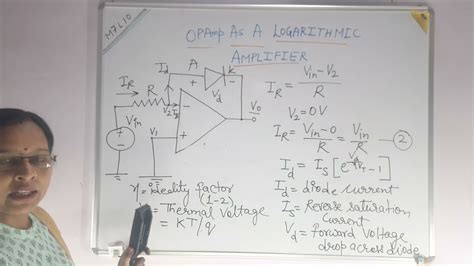 M7L10
OPAmp As A LOGARITHMIC
AMPLIFIER
I_R
R
I_d
A
V_d
V_2
V_in
V_1
V_0
I_R = V_in - V_2 / R
V_2 = 0V
I_R = V_in - 0 / R = V_in / R
2
I_d = I_s [e -1]
I_d = diode current
I_s = Reverse saturation
current
V_d = Forward Voltage
drop across diode
η = ideality factor
(1-2)
= Thermal Voltage
= KT/q